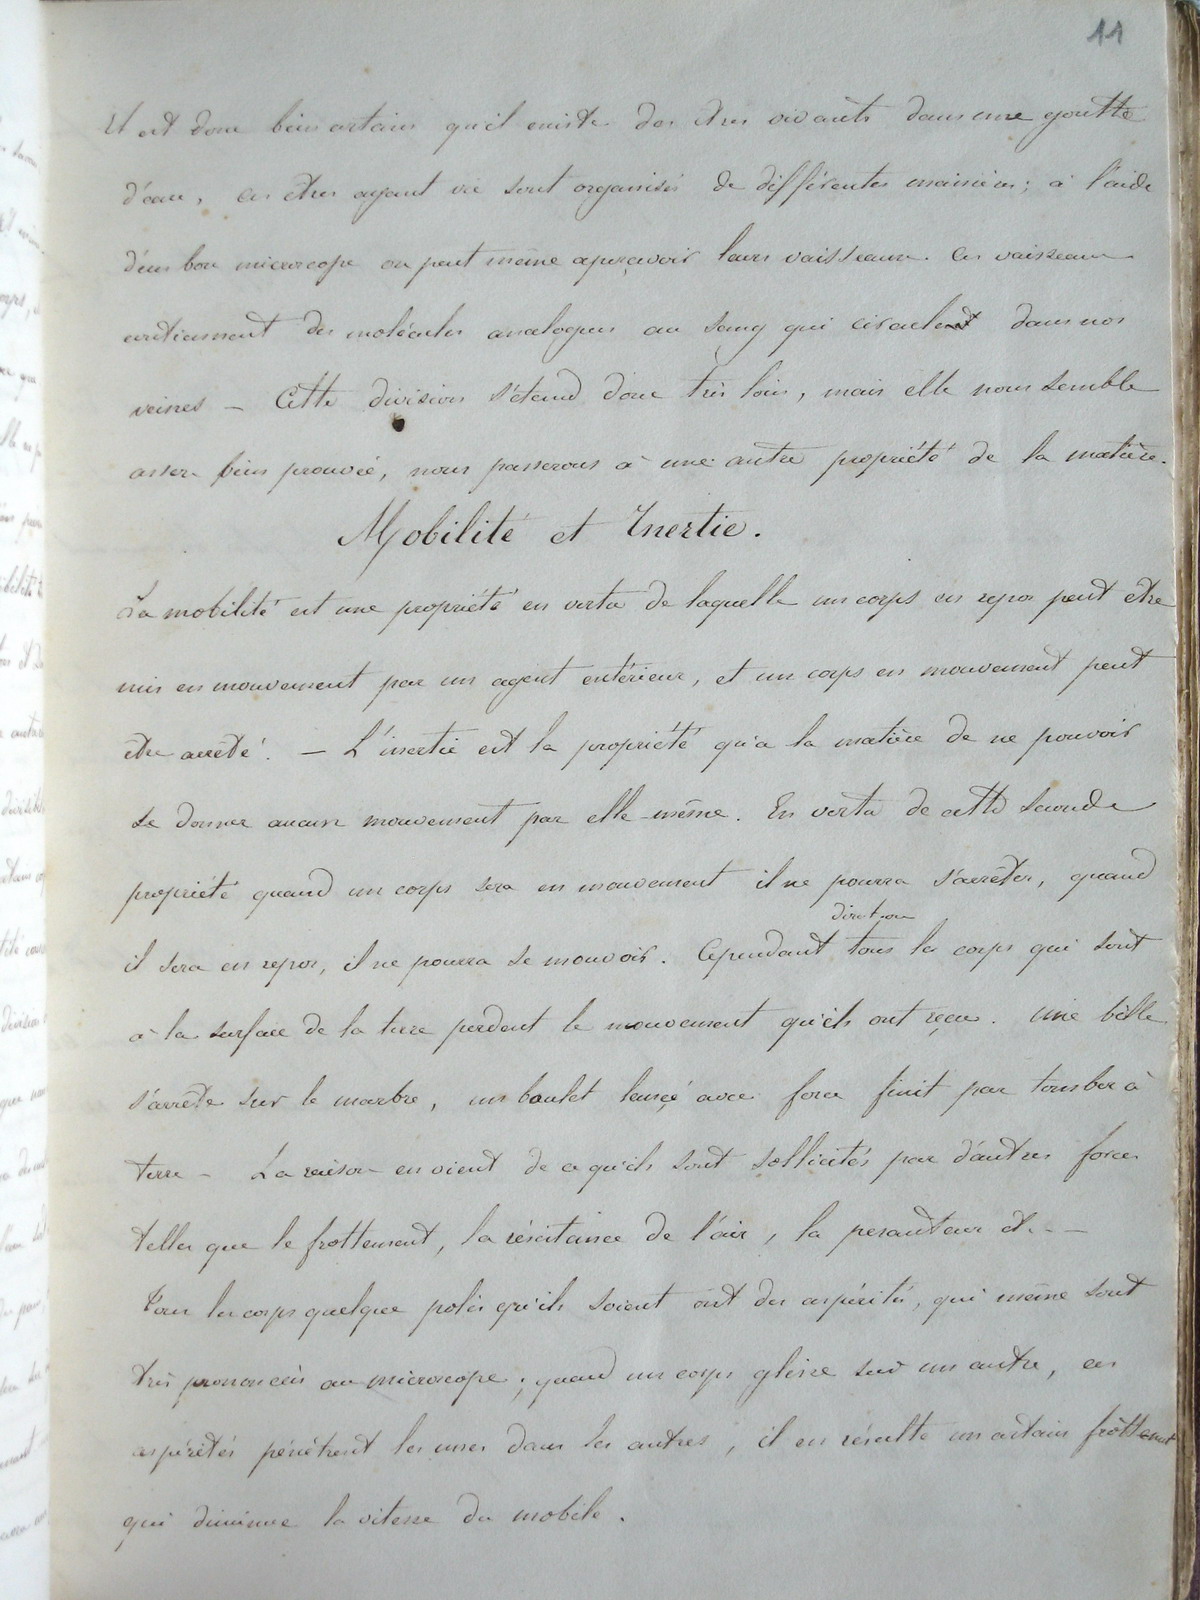 11
Il est donc bien certain qu'il existe des êtres vivants dans une goutte
d'eau, ces êtres ayant vie sont organisés de différentes manières; à l'aide
d'un bon microscope on peut même apercevoir leurs vaisseaux. Ces vaisseaux
contiennent des molécules analogues au sang qui circulent dans nos
veines – Cette division s'étend donc très loin, mais elle nous semble
assez bien prouvée, nous passerons à une autre propriété de la matière.
Mobilité et Inertie.
La mobilité est une propriété en vertu de laquelle un corps en repos peut être
mis en mouvement par un agent extérieur, et un corps en mouvement peut
être arrêté. – L'inertie est la propriété qu'a la matière de ne pouvoir
se donner aucun mouvement par elle-même. En vertu de cette seconde
propriété quand un corps sera en mouvement il ne pourra s'arrêter, quand
il sera en repos, il ne pourra se mouvoir. Cependant tous les corps qui sont
à la surface de la terre perdent le mouvement qu'ils ont reçu. Une bille
s'arrête sur le marbre, un boulet lancé avec force finit par tomber à
terre – La raison en vient de ce qu'ils sont sollicités par d'autres forces
telles que le frottement, la résistance de l'air, la pesanteur et. – –
Tous les corps quelque polis qu'ils soient ont des aspérités, qui même sont
très prononcées au microscope; quand un corps glisse sur un autre, ces
aspérités pénètrent les unes dans les autres, il en résulte un certain frottement
qui diminue la vitesse du mobile.